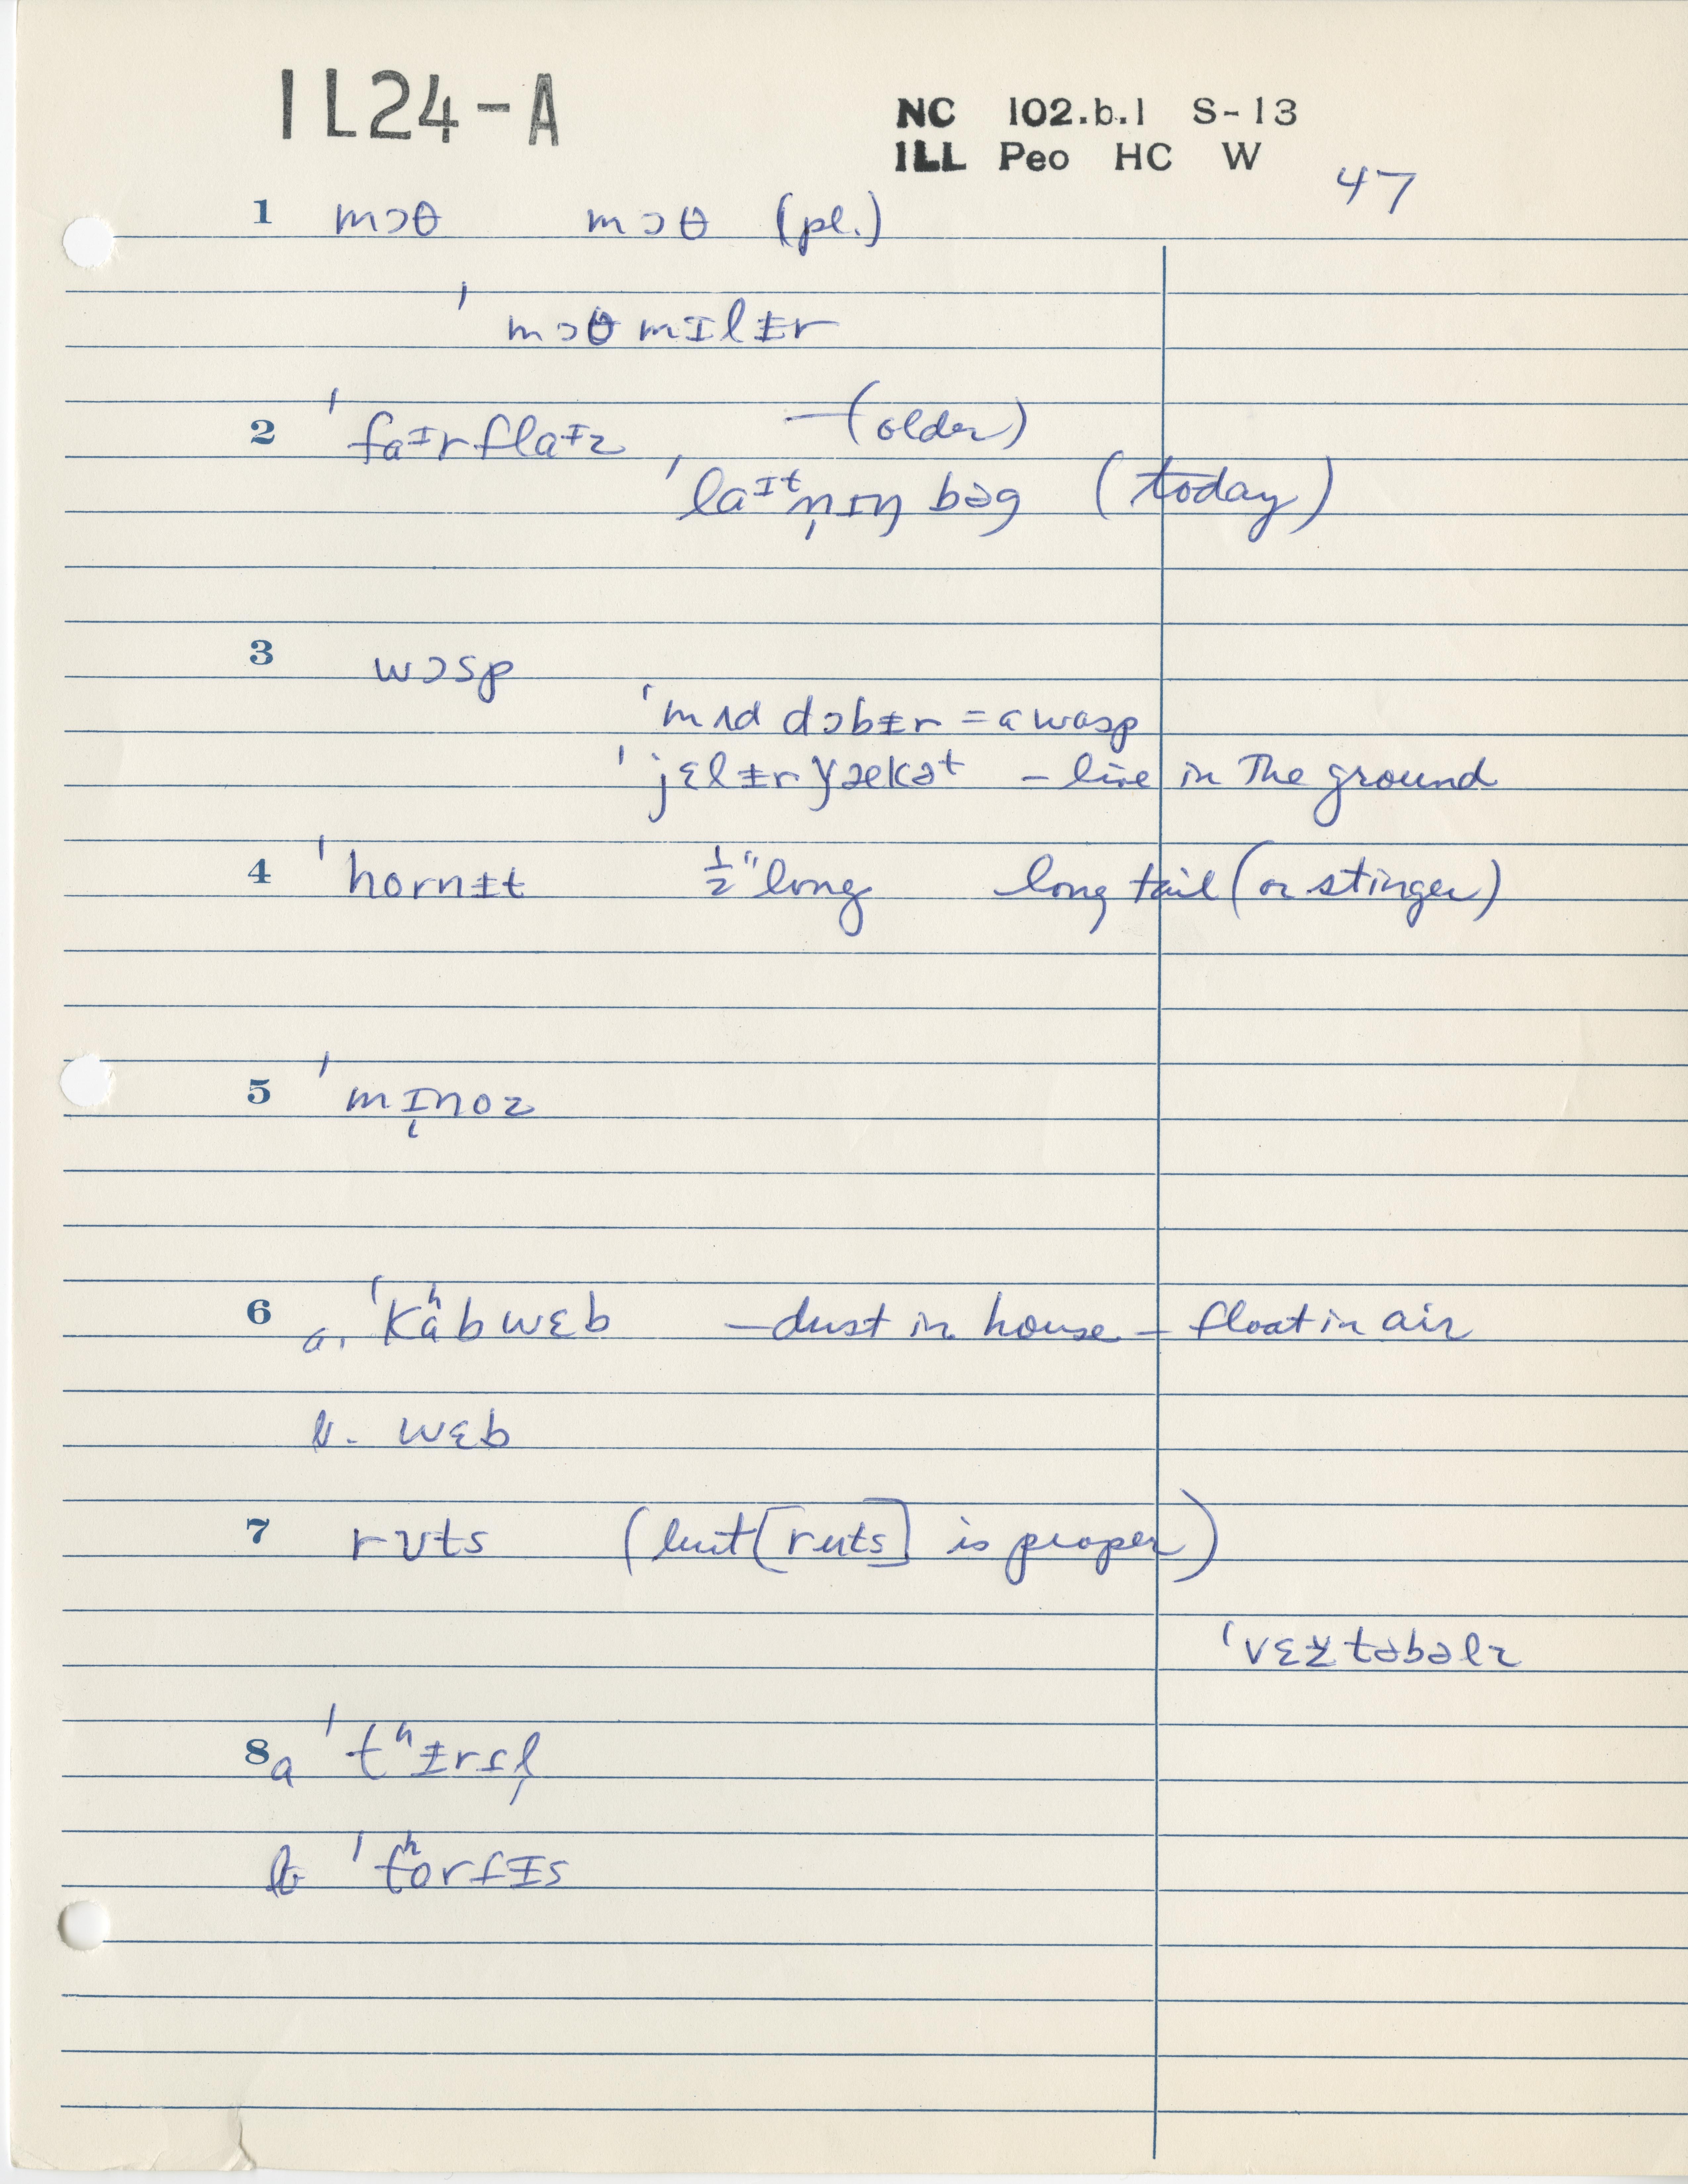 1L24-A
NC 102.b.1 S-13
ILL Peo HC W
47
1 mɔθ mɔθ (pl.)
ˈmɔθ mɪlɨr
2 ˈfaᵻrflaᵻz —(older)
ˈlaɪᵗn̩ɪŋ bəg (today)
3 wɔsp
ˈmʌd dɔbɨr = a wasp
ˈjɛlɨr ǰækət – live in The ground
4 ˈhornɨt ½" long long tail (or stinger)
5 ˈmɪ̨noz
6 a. ˈkʰabwɛb – dust in house – float in air
b. wɛb
7 rʊts (but [ruts] is proper)
ˈvɛɟtəbəlz
8a ˈtʰɨrsl̩
b ˈtʰorɾɨs